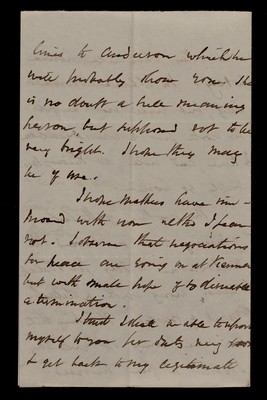 lines to Anderson which he
will probably show you. He
is no doubt a well meaning
person, but supposed not to be
very bright. I hope they may
be of use.
I hope matters have im-
proved with you altho I fear
not. I observe that negociations
for peace are going on at Vienna
but with small hope of
a termination.
I trust I shall be able to
myself to you for duty very soon
& get back to my legitimate